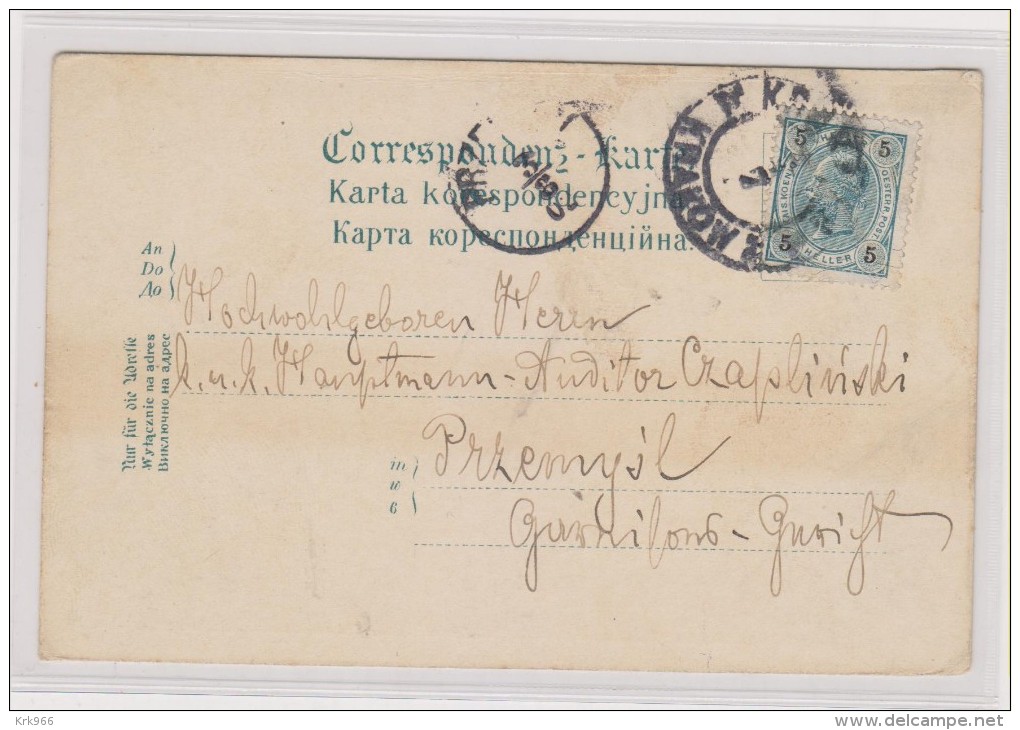 Correspondenz-Karte
Karta korespondencyjna
Карта кореспонденційна.
KRAKÓW KRAKAU
PRZE
5 5
KAIS. KOENIGL. OESTERR. POST
5 HELLER 5
An
Do
До
Hochwohlgeboren Herrn
k. u. k. Hauptmann-Auditor Czapliński
in
w
в
Przemyśl
Garnisons-Gericht
Nur für die Adresse
Wyłącznie na adres
Виключно на адрес
Krk966
www.delcampe.net